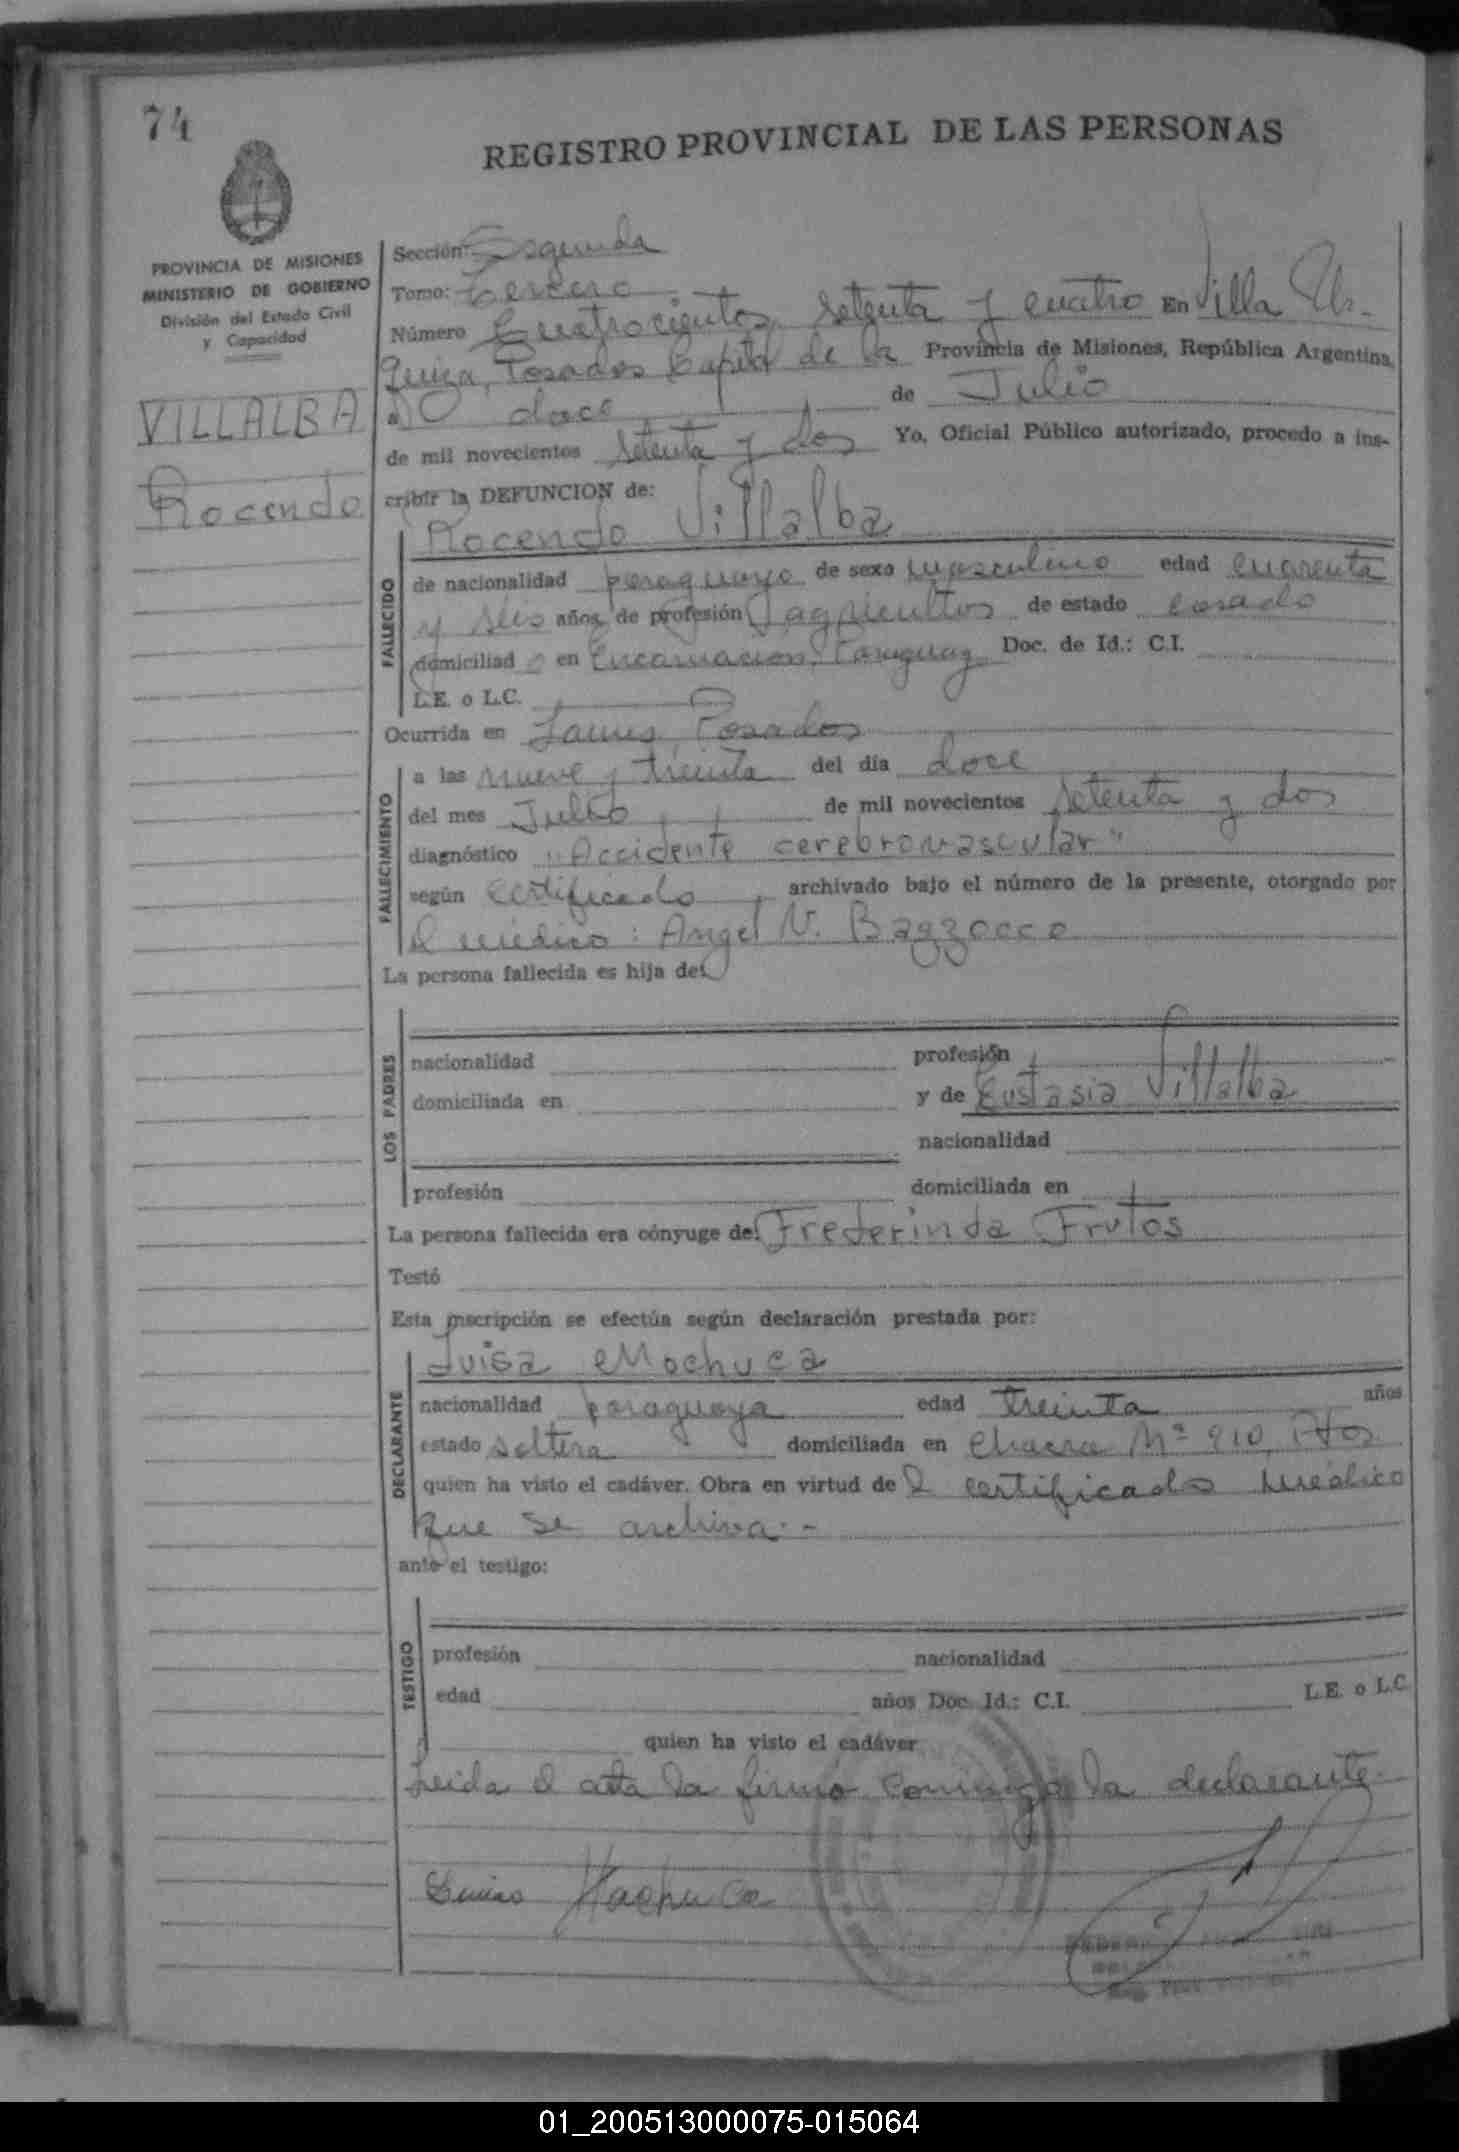 74
REGISTRO PROVINCIAL DE LAS PERSONAS
PROVINCIA DE MISIONES
MINISTERIO DE GOBIERNO
División del Estado Civil
y Capacidad
VILLALBA
Rocendo
Sección: Segunda
Tomo: tercero
Número Cuatrocientos setenta y cuatro En Villa Ur-
quiza, Posadas Capital de la Provincia de Misiones, República Argentina,
a doce de Julio
de mil novecientos setenta y dos Yo, Oficial Público autorizado, procedo a ins-
cribir la DEFUNCION de:
Rocendo Villalba
FALLECIDO
de nacionalidad paraguayo de sexo masculino edad cuarenta
y seis años, de profesión agricultor de estado casado
domiciliado en Encarnacion, Paraguay Doc. de Id.: C.I.
L.E. o L.C.
Ocurrida en Posadas
FALLECIMIENTO
a las nueve y treinta del día doce
del mes Julio de mil novecientos setenta y dos
diagnóstico "Accidente cerebrovascular"
según certificado archivado bajo el número de la presente, otorgado por
el médico: Angel V. Bazzocco
La persona fallecida es hija de:
LOS PADRES
nacionalidad profesión
domiciliada en y de Eustasia Villalba
nacionalidad
profesión domiciliada en
La persona fallecida era cónyuge de: Frederinda Frutos
Testó
Esta inscripción se efectúa según declaración prestada por:
DECLARANTE
Luisa Machuca
nacionalidad paraguaya edad treinta años
estado soltera domiciliada en chacra Nº 210, Pdas
quien ha visto el cadáver. Obra en virtud del certificado médico
que se archiva.-
ante el testigo:
TESTIGO
profesión nacionalidad
edad años Doc. Id.: C.I. L.E. o L.C.
quien ha visto el cadáver
Leida el acta la firmó conmigo la declarante.
Luisa Machuca
01_200513000075-015064